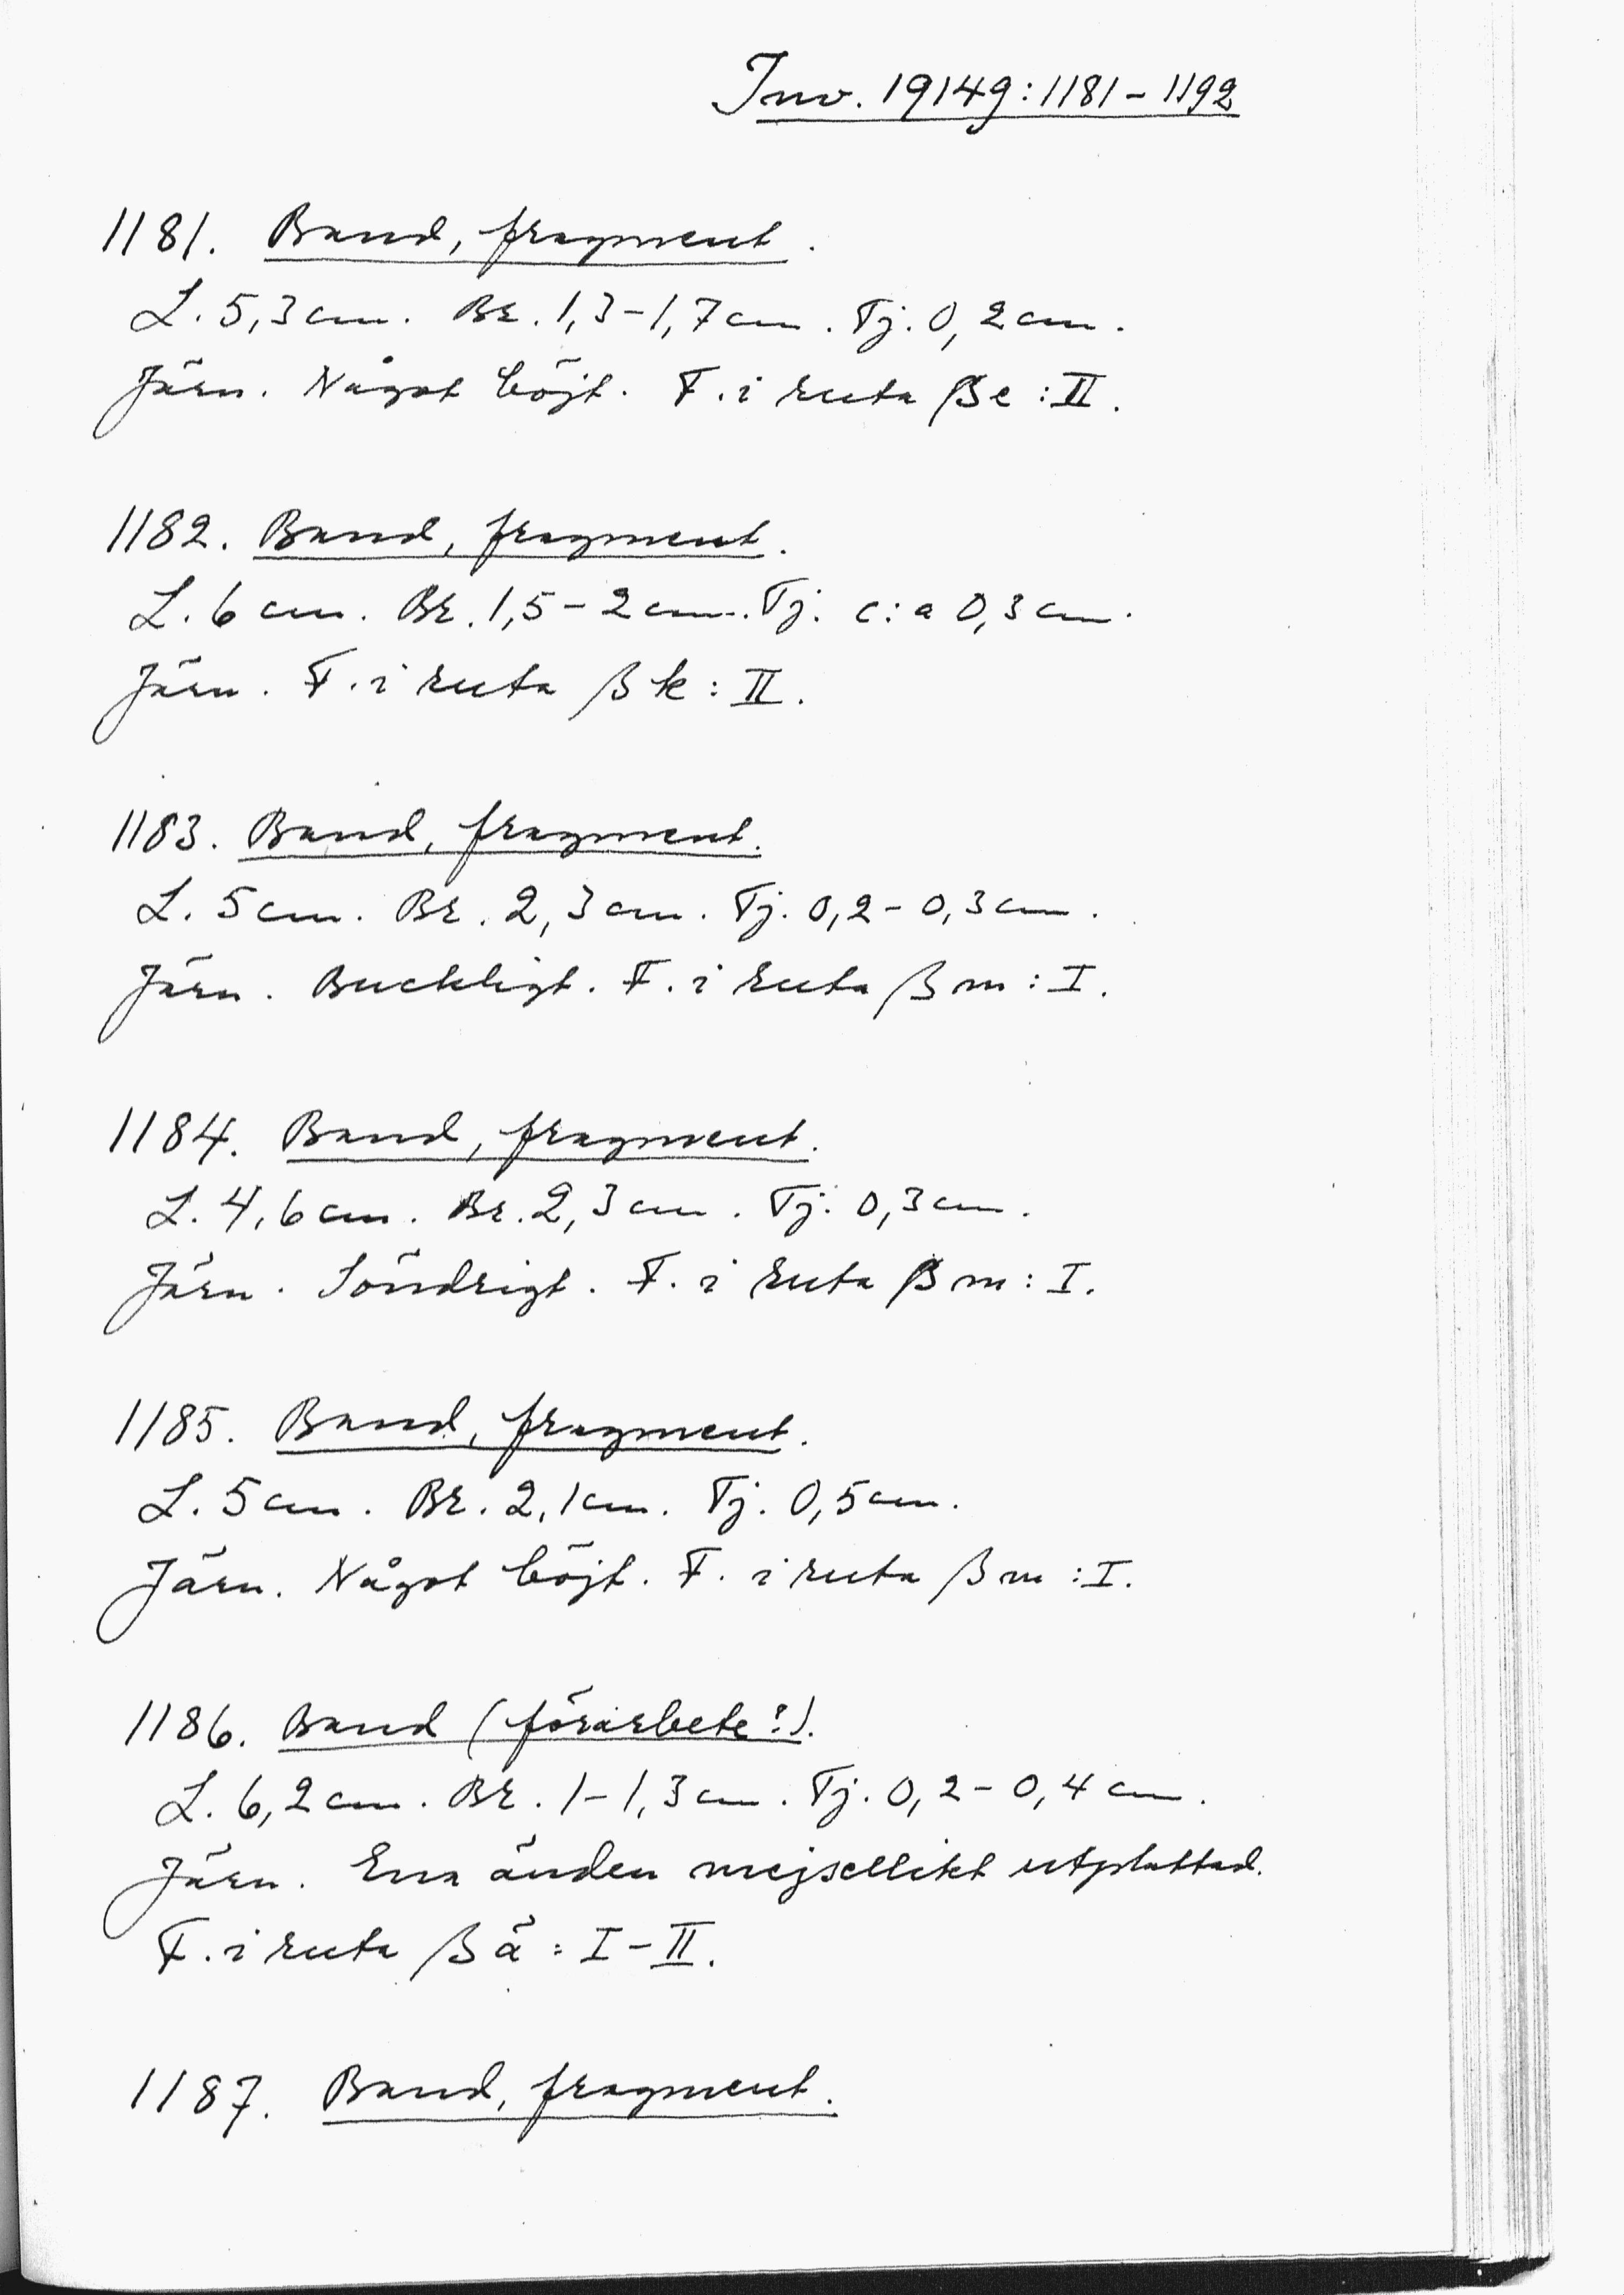 Inv. 19149:1181-1192
1181. Band, fragment.
L. 5,3 cm. Br. 1,3-1,7 cm. Tj. 0,2 cm.
Järn. Något böjt. F. i ruta βe:II.
1182. Band, fragment.
L. 6 cm. Br. 1,5-2 cm. Tj. c:a 0,3 cm.
Järn. F. i ruta βk:II.
1183. Band, fragment.
L. 5 cm. Br. 2,3 cm. Tj. 0,2-0,3 cm.
Järn. Buckligt. F. i ruta βm:I.
1184. Band, fragment.
L. 4,6 cm. Br. 2,3 cm. Tj. 0,3 cm.
Järn. Söndrigt. F. i ruta βm:I.
1185. Band, fragment.
L. 5 cm. Br. 2,1 cm. Tj. 0,5 cm.
Järn. Något böjt. F. i ruta βm:I.
1186. Band (förarbete?).
L. 6,2 cm. Br. 1-1,3 cm. Tj. 0,2-0,4 cm.
Järn. Ena änden mejsellikt utplattad.
F. i ruta βä:I-II.
1187. Band, fragment.